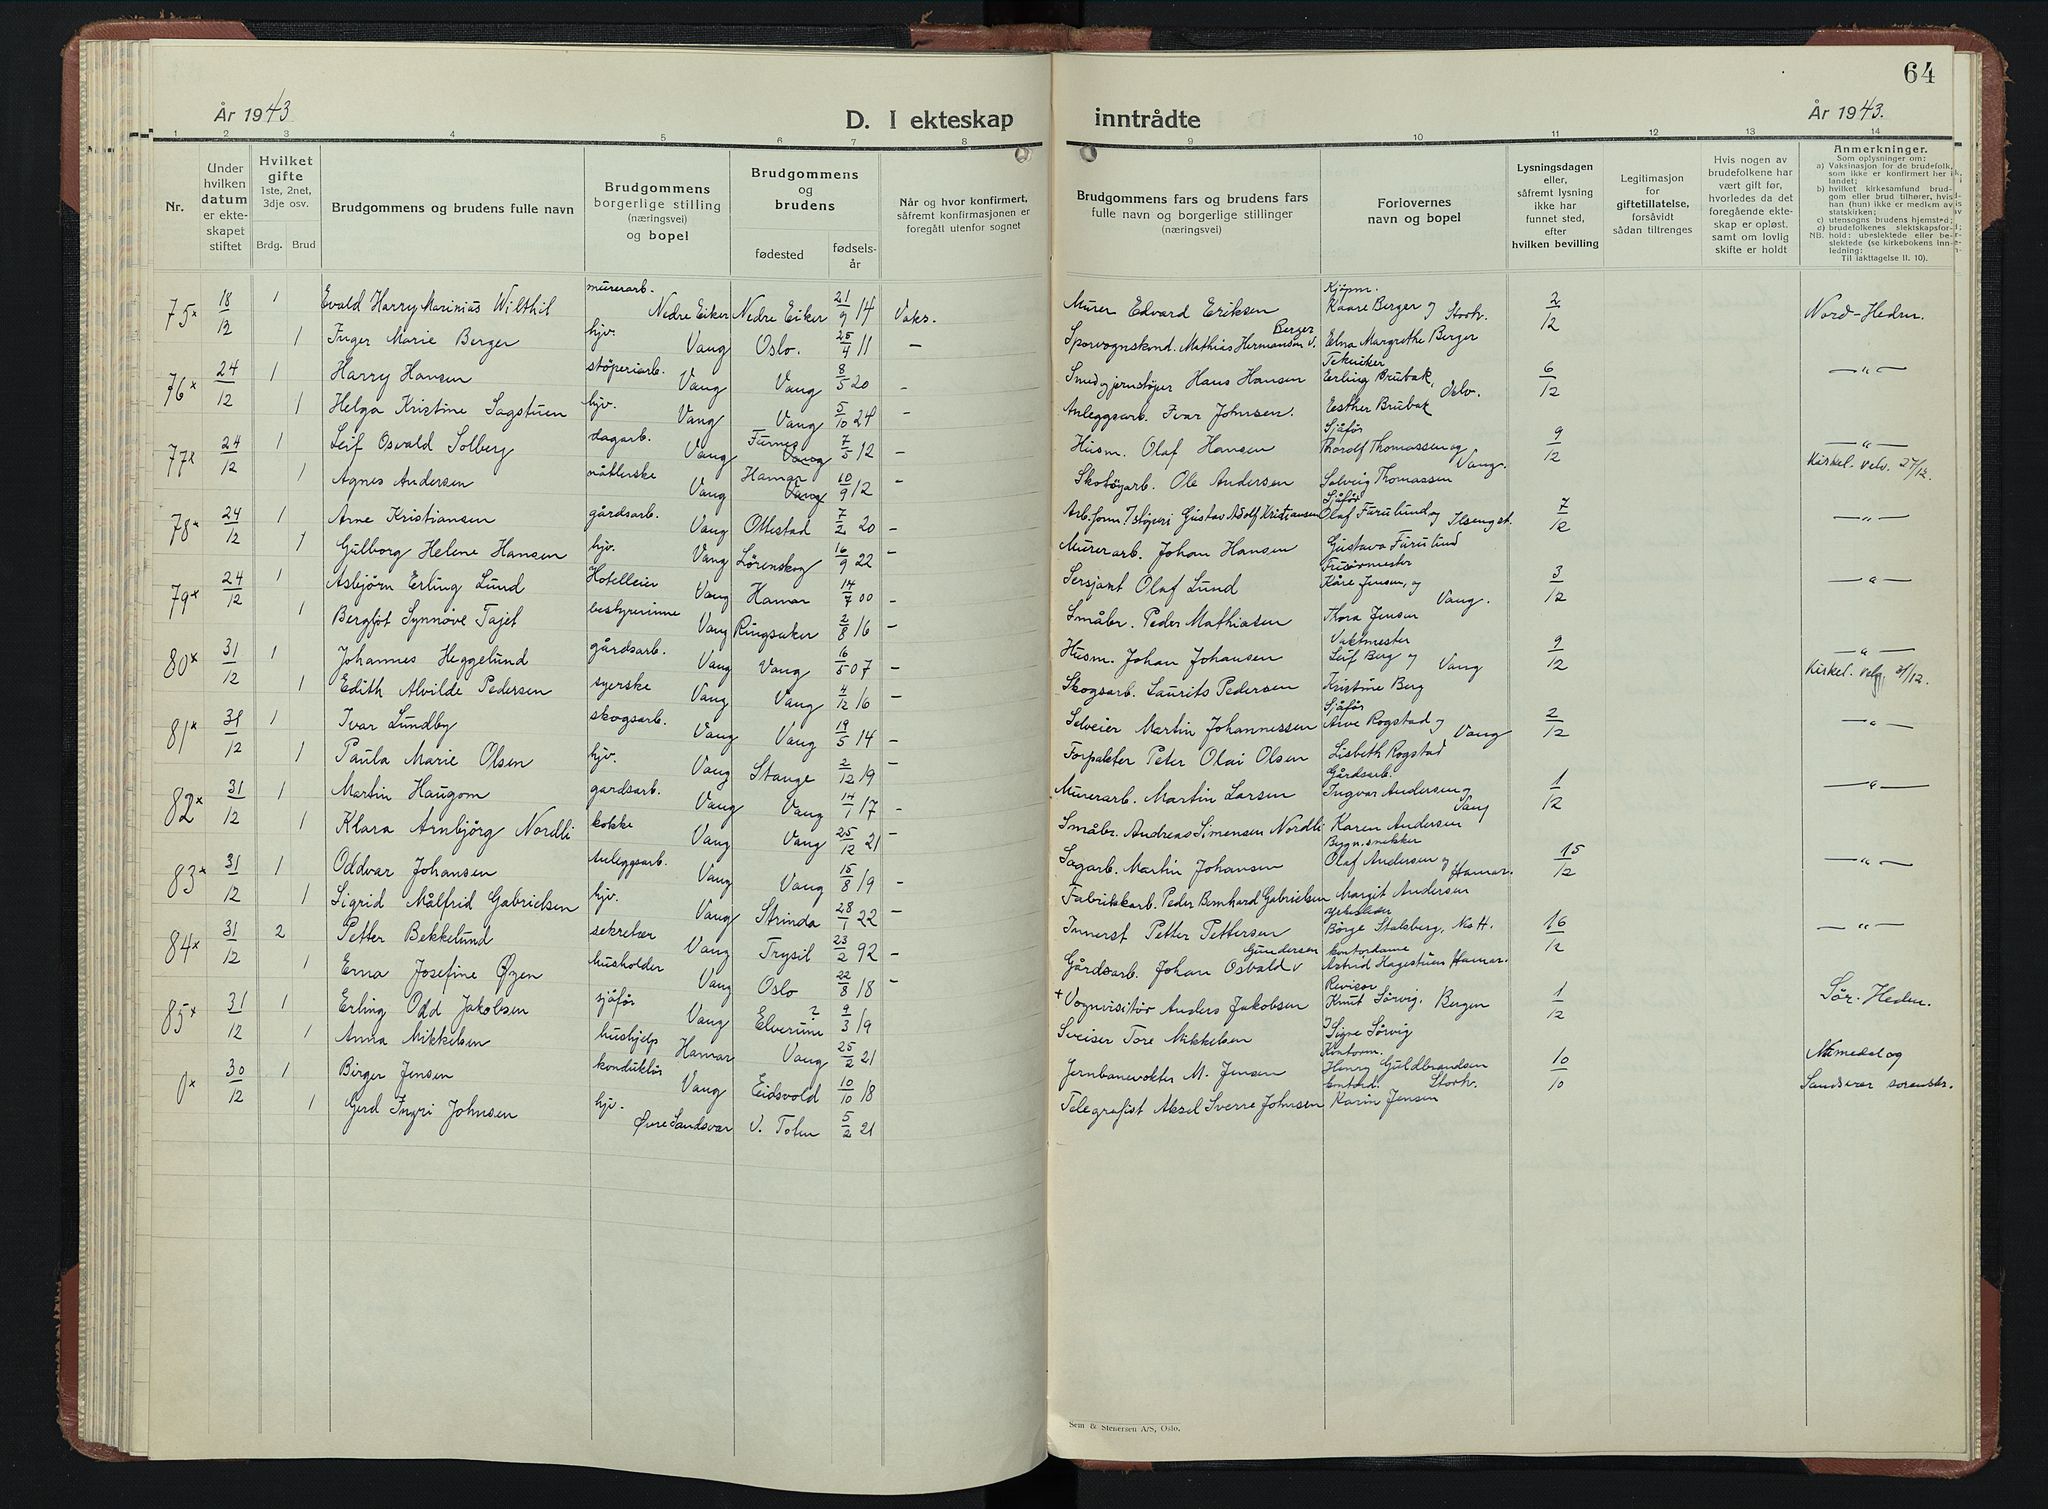 64
År 1943
D. I ekteskap
inntrådte
År 1943.
1 2 3 4 5 6 7 8 9 10 11 12 13 14
Nr.
Under
hvilken
datum
er ekte-
skapet
stiftet
Hvilket
gifte
1ste, 2net,
3dje osv.
Brdg. Brud
Brudgommens og brudens fulle navn
Brudgommens
borgerlige stilling
(næringsvei)
og bopel
Brudgommens
og
brudens
fødested
fødsels-
år
Når og hvor konfirmert,
såfremt konfirmasjonen er
foregått utenfor sognet
Brudgommens fars og brudens fars
fulle navn og borgerlige stillinger
(næringsvei)
Forlovernes
navn og bopel
Lysningsdagen
eller,
såfremt lysning
ikke har
funnet sted,
efter
hvilken bevilling
Legitimasjon
for
giftetillatelse,
forsåvidt
sådan tiltrenges
Hvis nogen av
brudefolkene har
vært gift før,
hvorledes da det
foregående ekte-
skap er opløst,
samt om lovlig
skifte er holdt
Anmerkninger.
Som oplysninger om:
a) Vaksinasjon for de brudefolk,
som ikke er konfirmert her i
landet;
b) hvilket kirkesamfund brud-
gom eller brud tilhører, hvis
han (hun) ikke er medlem av
statskirken;
c) utensogns brudens hjemsted;
d) brudefolkenes slektskapsfor-
NB. hold: ubeslektede eller be-
slektede (se kirkebokens inn-
ledning:
Til iakttagelse II. 10).
75x 18/12 1 Evald Harry Marinius Wilthil murerarb. Nedre Eiker Nedre Eiker 21/9 14 Vaks. Murer Edvard Eriksen Kjöpm. Kaare Berger og Storh. 2/12 Nord-Hedm.
1 Inger Marie Berger hjv. Vang Oslo. 25/4 11 — Sporvognskond. Mathias Hermansen Berger Edna Margrethe Berger
76x 24/12 1 Harry Hansen støperiarb. Vang Vang 8/5 20 — Smedgjernstøper Hans Hansen Tekniker Erling Brubak, Oslo. 6/12 — " —
1 Helga Kristine Sagstuen hjv. Vang Vang 5/10 24 — Anleggsarb. Ivar Johnsen. Esther Brubak
77x 24/12 1 Leif Osvald Solberg dagarb. Vang Furnes Vang 7/5 12 — Husm. Olaf Hansen Sjåfør Thorolf Thomassen og Vang. 9/12 — " —
1 Agnes Andersen nåtlerske Vang Hamar Vang 10/9 12 — Skotøyarb. Ole Andersen Solveig Thomassen Kirkel. velv. 27/12.
78x 24/12 1 Arne Kristiansen gårdsarb. Vang Ottestad 7/2 20 — Arb.form. i støperi Gustav Adolf Kristiansen Sjåfør Olaf Furulund og Ilsengst. 7/12 — " —
1 Gulborg Helene Hansen hjv. Vang Lørenskog 16/9 22 — Murerarb. Johan Hansen Gustava Furulund
79x 24/12 1 Asbjörn Erling Lund Hotelleier Vang Hamar 14/7 00 — Sersjant Olaf Lund Frisörmester Kåre Jensen, og Vang. 3/12 — " —
1 Bergljot Synnöve Tajet bestyrerinne Vang Ringsaker 2/8 16 — Småbr. Peder Mathiasen Thora Jensen
80x 31/12 1 Johannes Heggelund gårdsarb. Vang Vang 16/5 07 — Husm. Johan Johansen Vaktmester Leif Berg og Vang 9/12 — " —
1 Edith Alvilde Pedersen syerske Vang Vang 4/12 16 — Skogsarb. Laurits Pedersen Kristine Berg Kirkel. velg. 31/12.
81x 31/12 1 Ivar Lundby skogsarb. Vang Vang 19/5 14 — Selveier Martin Johannessen Sjåfør Arve Rogstad og Vang 2/12 — " —
1 Paula Marie Olsen hjv. Vang Stange 2/12 19 — Forpakter Peter Olai Olsen Lisbeth Rogstad
82x 31/12 1 Martin Haugom gardsarb. Vang Vang 14/1 17 — Murerarb. Martin Larsen Gårdsarb. Ingvar Andersen og Vang 1/12 — " —
1 Klara Arnbjörg Nordli kokke Vang Vang 25/12 21 — Småbr. Andreas Simensen Nordli Karen Andersen
83x 31/12 1 Oddvar Johansen anleggsarb. Vang Vang 15/8 19 — Sagarb. Martin Johansen Bygn.snekker Olaf Andersen og Hamar. 15/12 — " —
1 Sigrid Målfrid Gabrielsen hjv. Vang Strinda 28/1 22 — Fabrikkarb. Peder Bernhard Gabrielsen Margit Andersen
84x 31/12 2 Petter Bekkelund sekretær Vang Trysil 23/2 92 — Innerst Petter Pettersen Børge Stalsberg, N.H. 16/12 — " —
1 Erna Josefine Øyen husholder Vang Oslo 22/8 18 — Gårdsarb. Johan Osvald Gundersen kontordame Astrid Hagestuen Hamar.
85x 31/12 1 Erling Odd Jakobsen sjåfør Vang Elverum ? 9/3 19 + Vognvisitör Anders Jakobsen Revisor Knut Sörvig, Bergen 1/12 Sör-Hedm.
1 Anna Mikkelsen hushjelp Hamar Vang 25/2 21 Sveiser Tore Mikkelsen Signe Sörvig
0x 30/12 1 Birger Jensen konduktör Vang Eidsvold 10/10 18 Jernbanevokter M. Jensen Kontorm. Henry Guldbrandsen Storh. 10/10 Numedal og
1 Gerd Ingri Johnsen hjv. Øvre Sandsvær V. Toten 5/2 21 Telegrafist Aksel Sverre Johnsen Karin Jensen Sandsvær sorenskr.
Sem & Stenersen A/S, Oslo.